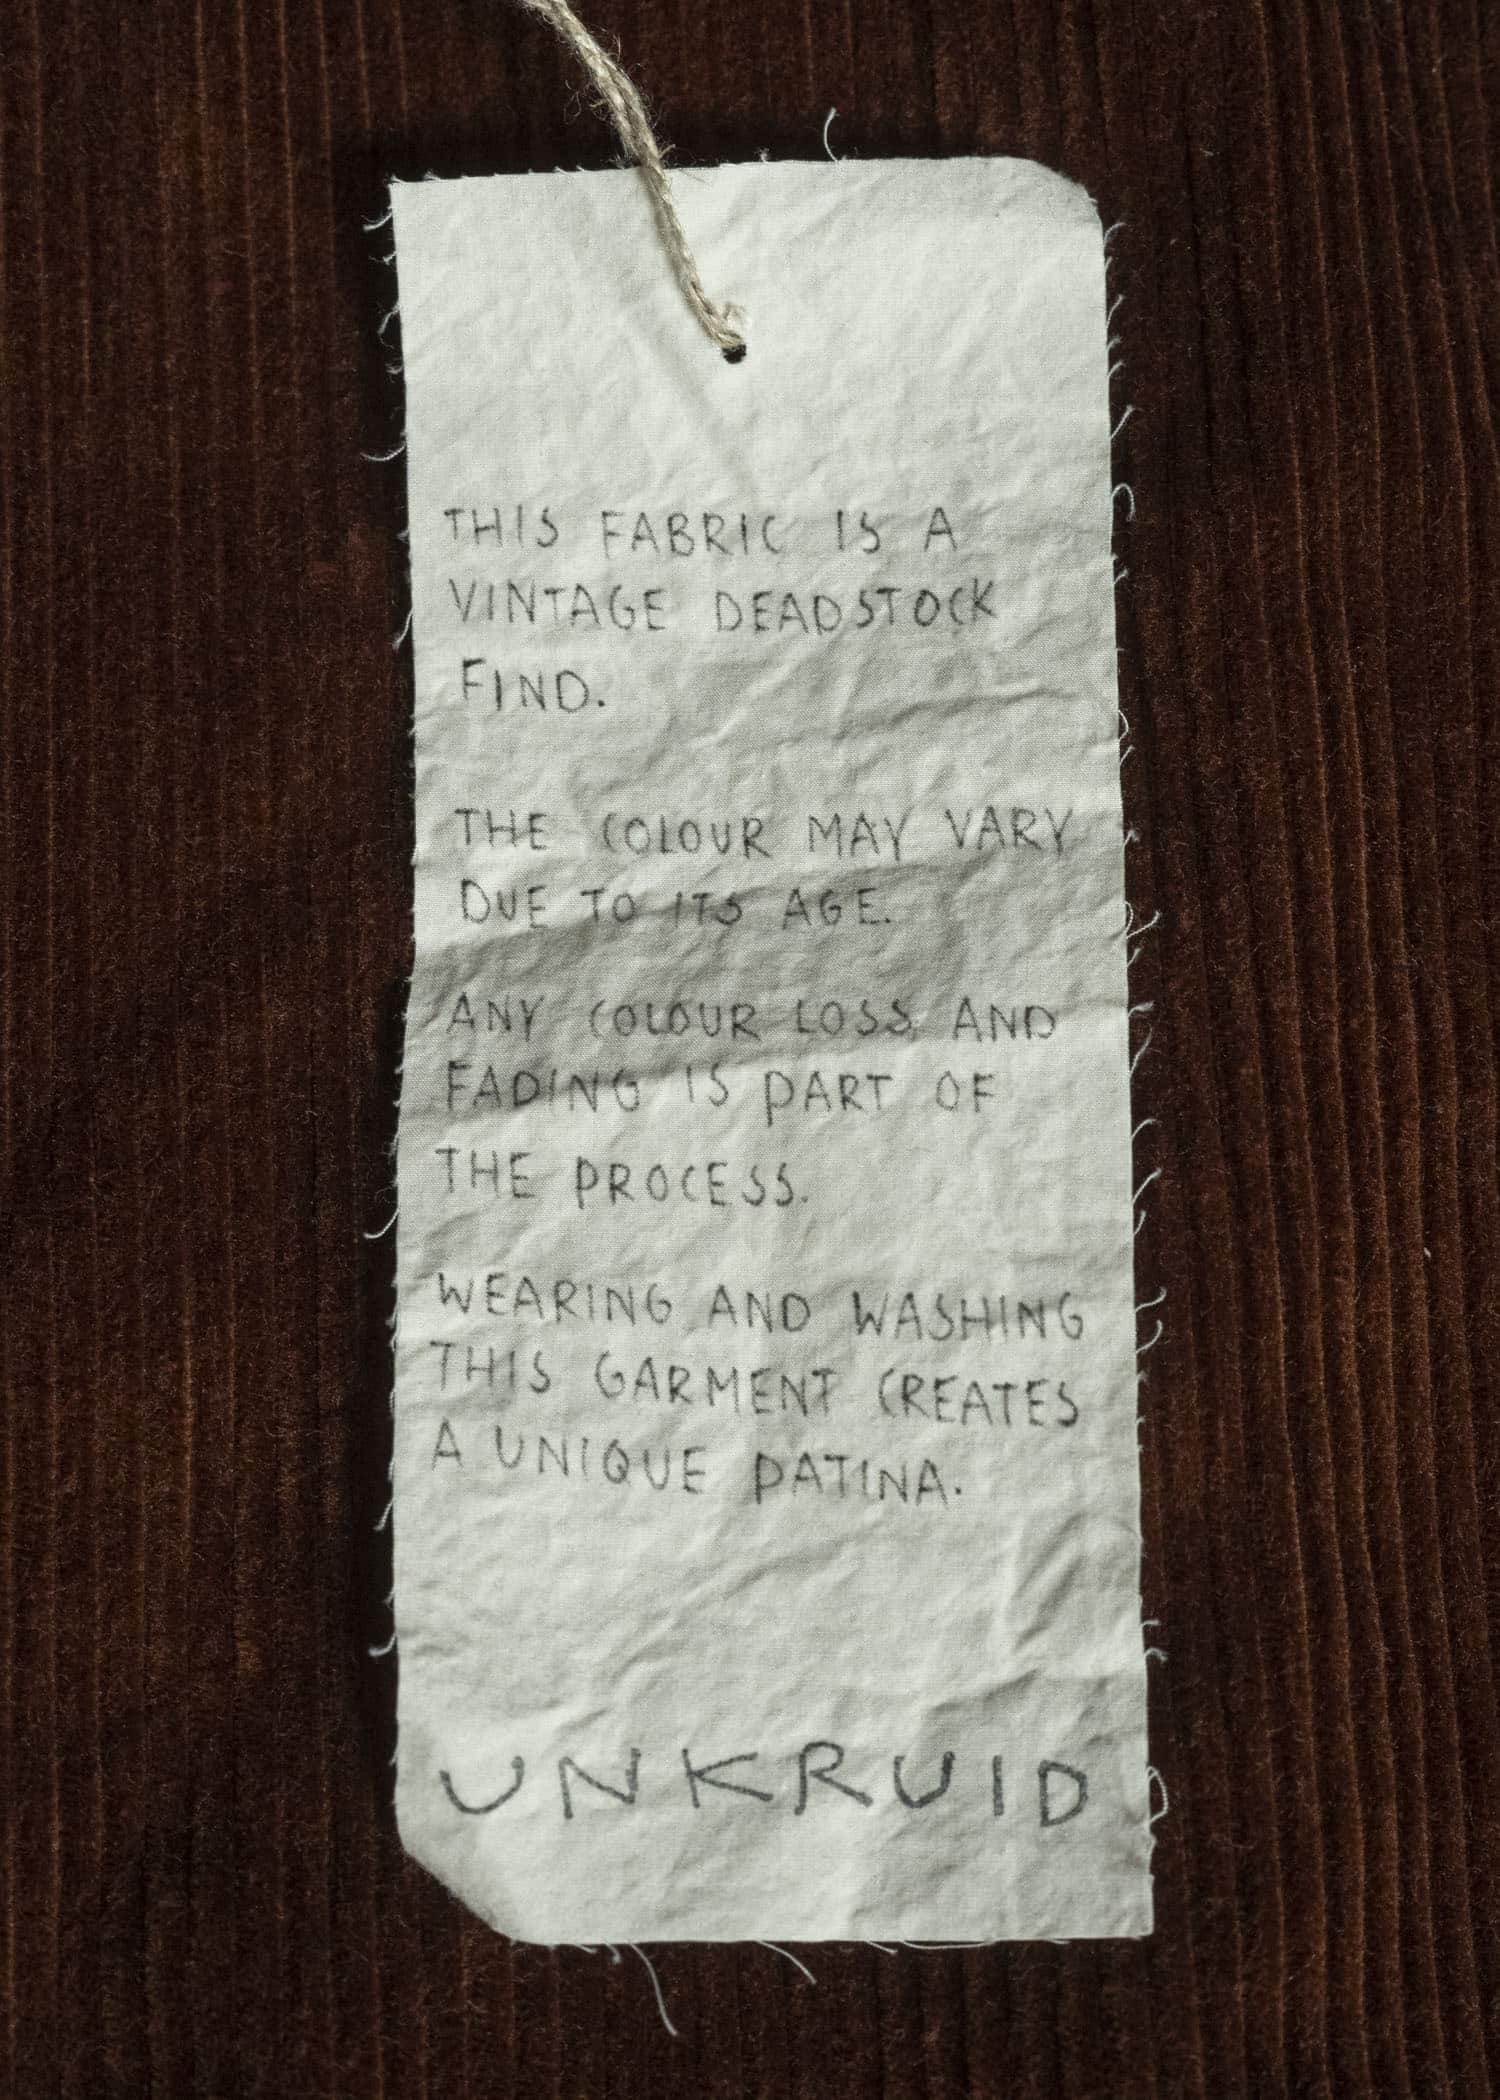 THIS FABRIC IS A
VINTAGE DEADSTOCK
FIND.
THE COLOUR MAY VARY
DUE TO ITS AGE.
ANY COLOUR LOSS AND
FADING IS PART OF
THE PROCESS.
WEARING AND WASHING
THIS GARMENT CREATES
A UNIQUE PATINA.
UNKRUID